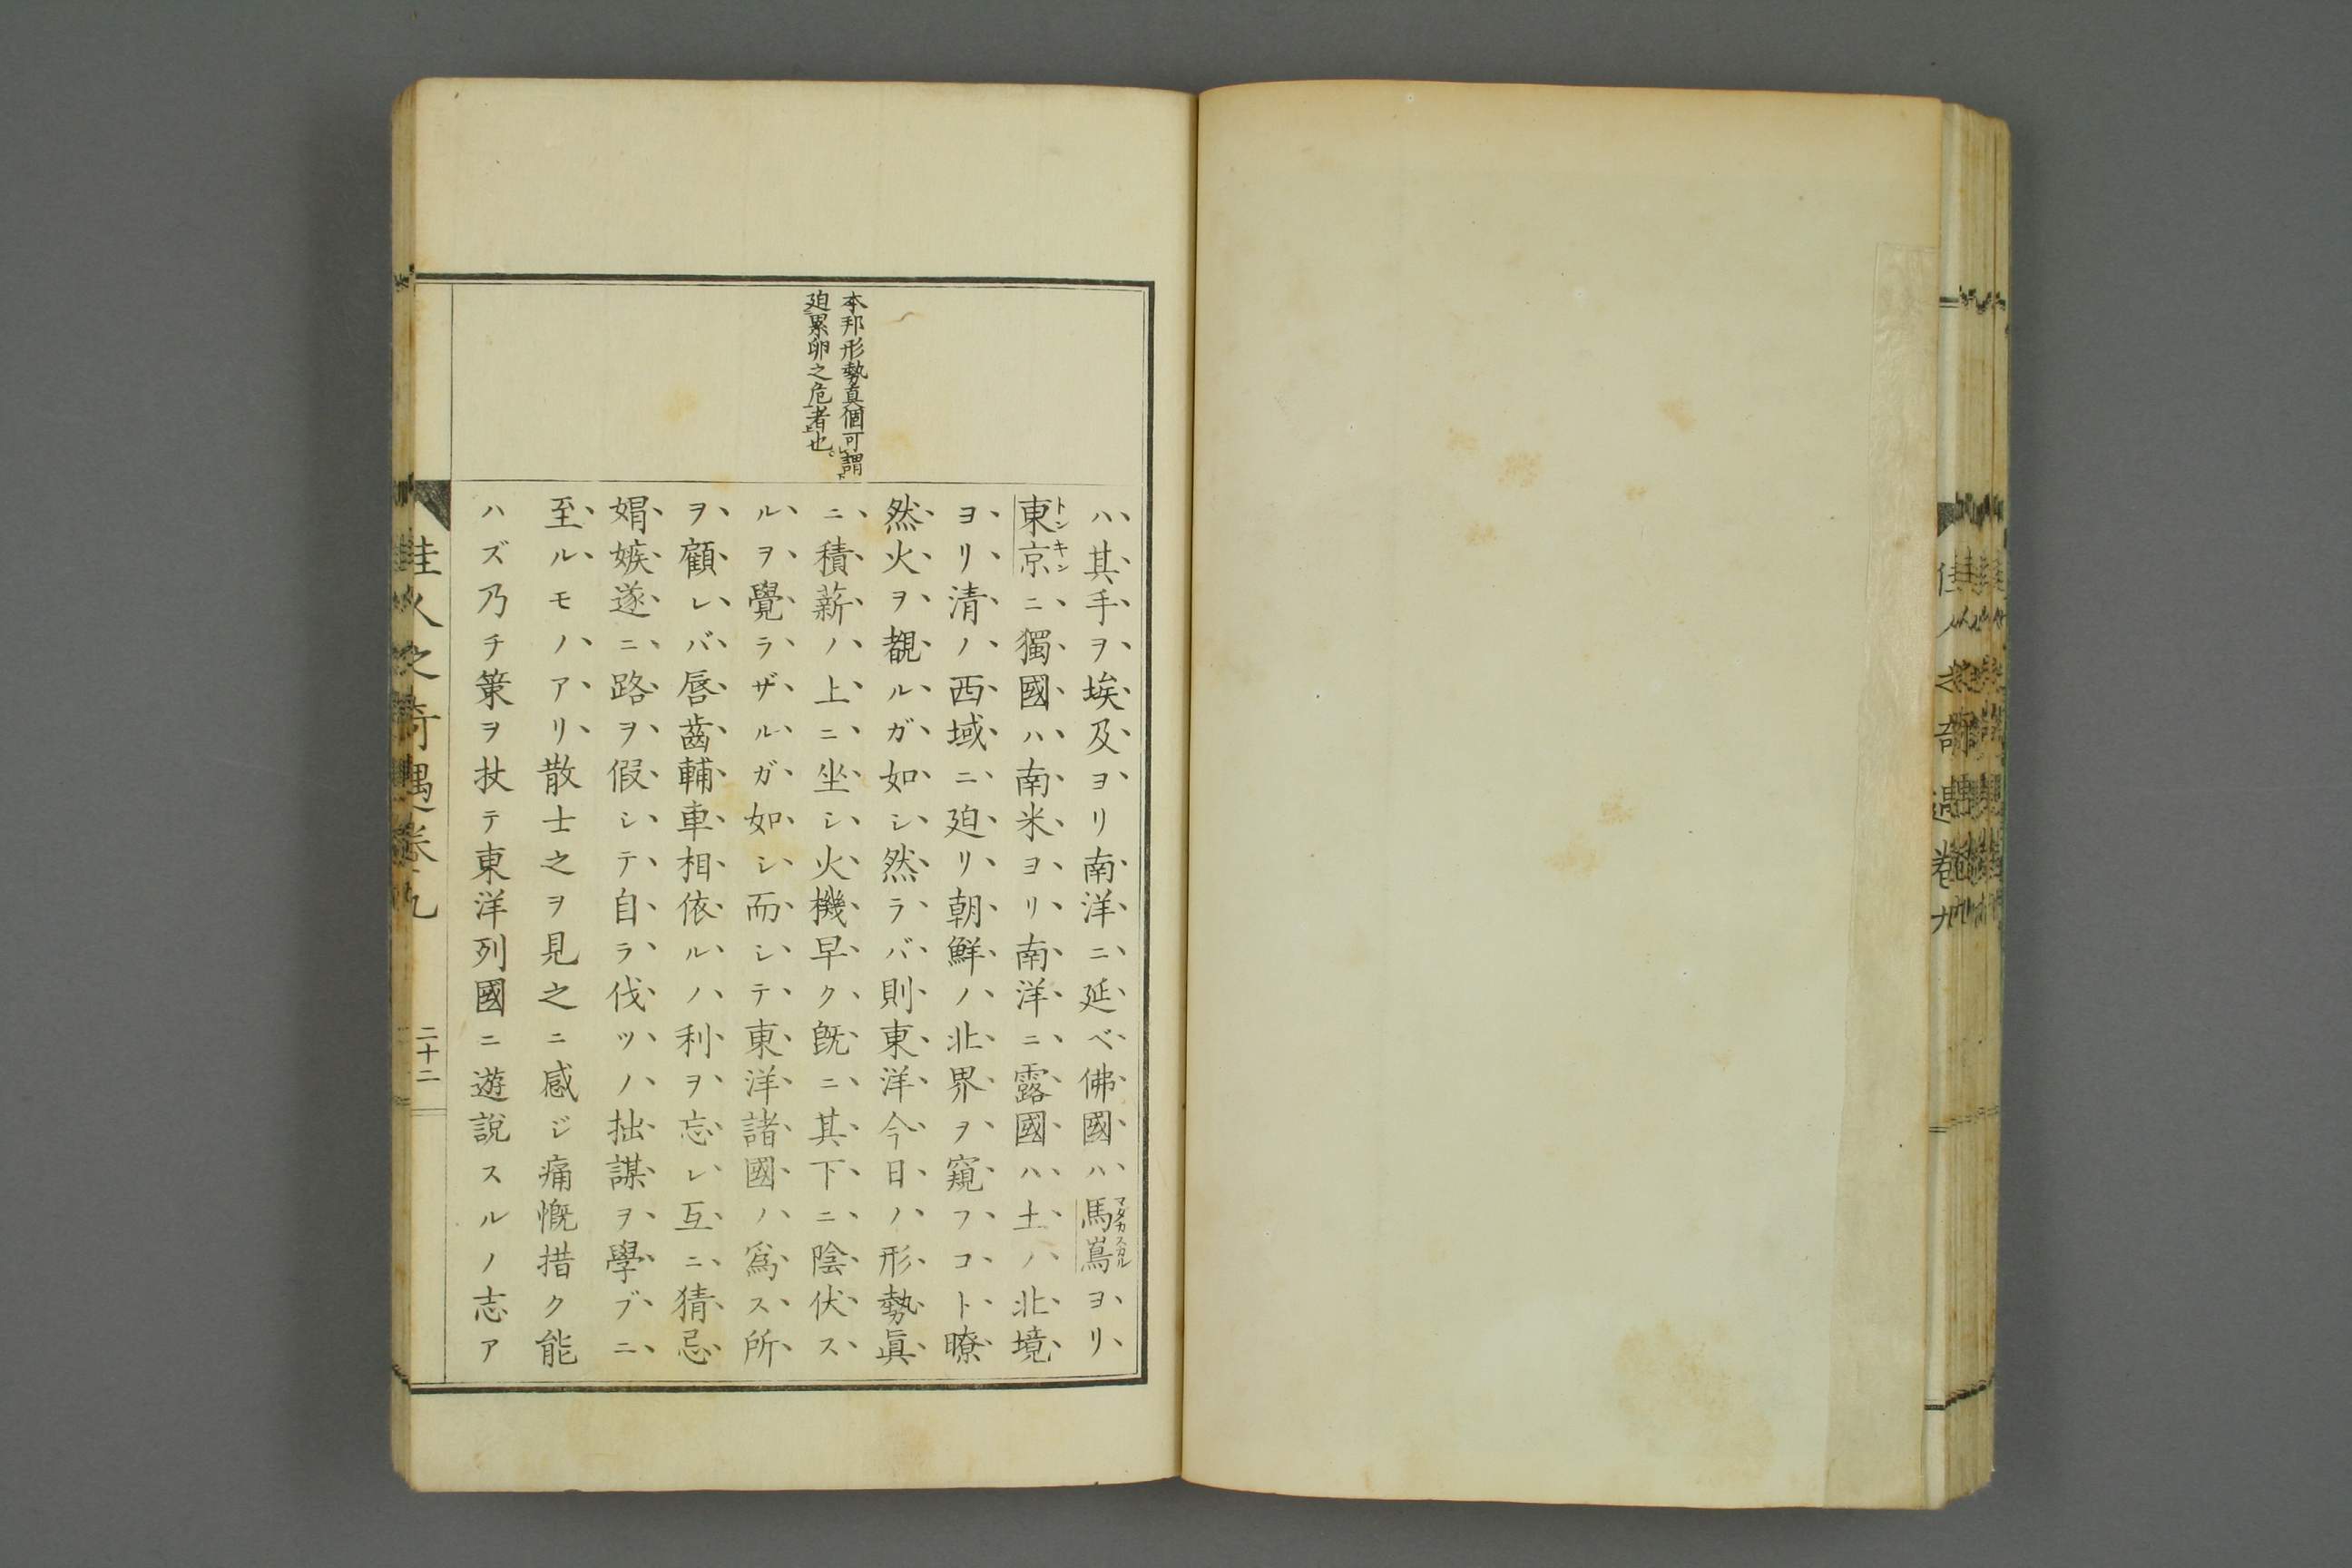 本邦形勢真個可謂
廹累卵之危者也
ハ其手ヲ埃及ヨリ南洋ニ延ベ佛國ハ馬嶌ヨリ
マダガスカル
東京ニ獨國ハ南米ヨリ南洋ニ露國ハ土ノ北境
トンキン
ヨリ清ノ西域ニ廹リ朝鮮ノ北界ヲ窺フコト暸
然火ヲ覩ルガ如シ然ラバ則東洋今日ノ形勢眞
ニ積薪ノ上ニ坐シ火機早ク既ニ其下ニ陰伏ス
ルヲ覺ラザルガ如シ而シテ東洋諸國ノ爲ス所
ヲ顧レバ唇齒輔車相依ルノ利ヲ忘レ互ニ猜忌
媢嫉遂ニ路ヲ假シテ自ラ伐ツノ拙謀ヲ學ブニ
至ルモノアリ散士之ヲ見之ニ感ジ痛慨措ク能
ハズ乃チ策ヲ杖テ東洋列國ニ遊說スルノ志ア
佳人之奇遇卷九
二十二
佳人之奇遇卷九